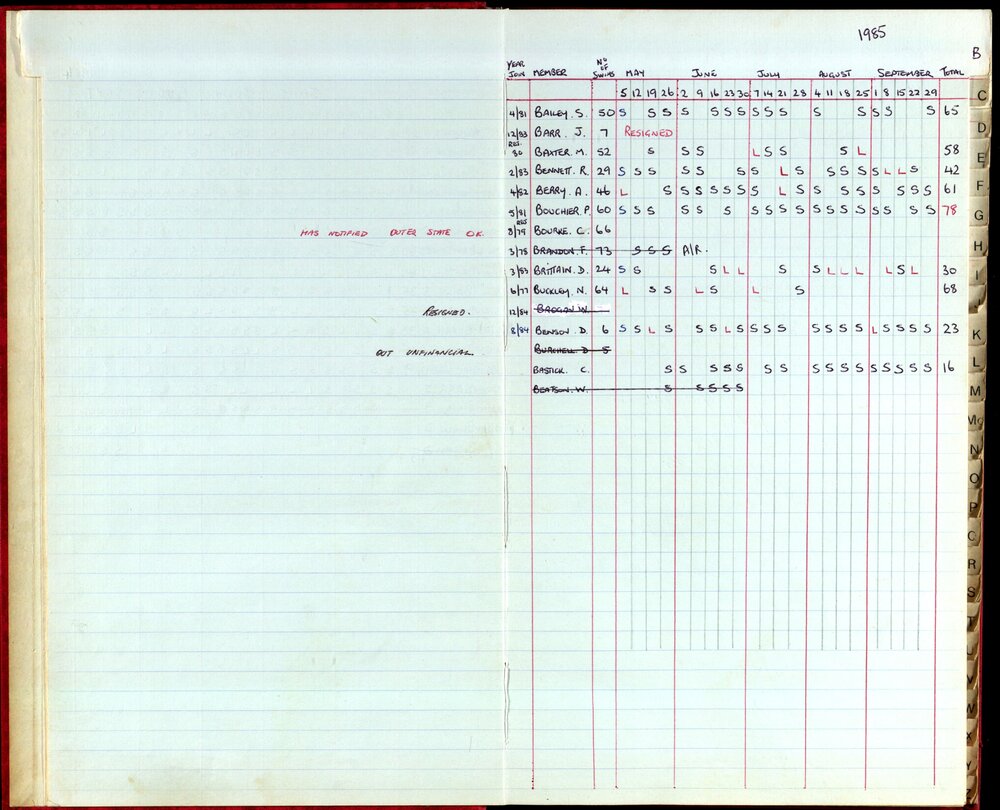 1985
B
YEAR JOIN MEMBER NO OF SWIMS MAY JUNE JULY AUGUST SEPTEMBER TOTAL
5 12 19 26 2 9 16 23 30 7 14 21 28 4 11 18 25 1 8 15 22 29
4/81 BAILEY. S. 50 S S S S S S S S S S S S S S S 65
12/83 BARR. J. 7 RESIGNED
RES. 80 BAXTER. M. 52 S S S L S S S L 58
2/83 BENNETT. R. 29 S S S S S S S L S S S S S L L S 42
4/82 BERRY. A. 46 L S S S S S S S L S S S S S S S S 61
5/81 BOUCHIER. P. 60 S S S S S S S S S S S S S S S S S S 78
HAS NOTIFIED OUTER STATE OK. RES 8/79 BOURKE. C. 66
3/78 BRANDON. F. 73 S S S A/R.
3/83 BRITTAIN. D. 24 S S S L L S S L L L L S L 30
6/77 BUCKLEY. N. 64 L S S L S L S 68
RESIGNED. 12/84 BROGAN W.
8/84 BENSON. D. 6 S S L S S S L S S S S S S S S L S S S S 23
OUT UNFINANCIAL BURCHELL D 5
BASTICK. C. S S S S S S S S S S S S S S S S 16
BEATSON. W. S S S S S
C
D
E
F
G
H
I
J
K
L
M
Mc
N
O
P
Q
R
S
T
U
V
W
X
Y